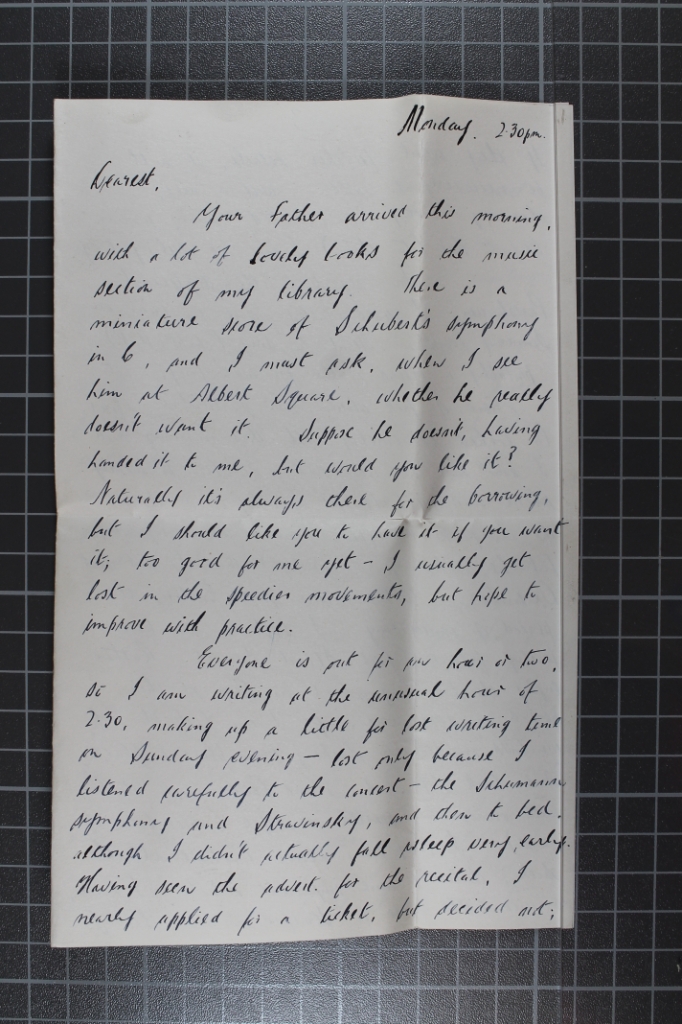 Monday. 2.30pm.
Dearest,
Your Father arrived this morning,
with a lot of lovely books for the music
section of my library. There is a
miniature score of Schubert's symphony
in C, and I must ask, when I see
him at Albert Square, whether he really
doesn't want it. Suppose he doesn't, having
handed it to me, but would you like it?
Naturally it's always there for the borrowing,
but I should like you to have it if you want
it; too good for me yet – I usually get
lost in the speedier movements, but hope to
improve with practice.
Everyone is out for an hour or two,
so I am writing at the unusual hour of
2.30, making up a little for lost writing time
on Sunday evening – lost only because I
listened carefully to the concert – the Schumann
symphony and Stravinsky, and then to bed,
although I didn't actually fall asleep very early.
Having seen the advert. for the recital, I
nearly applied for a ticket, but decided not;